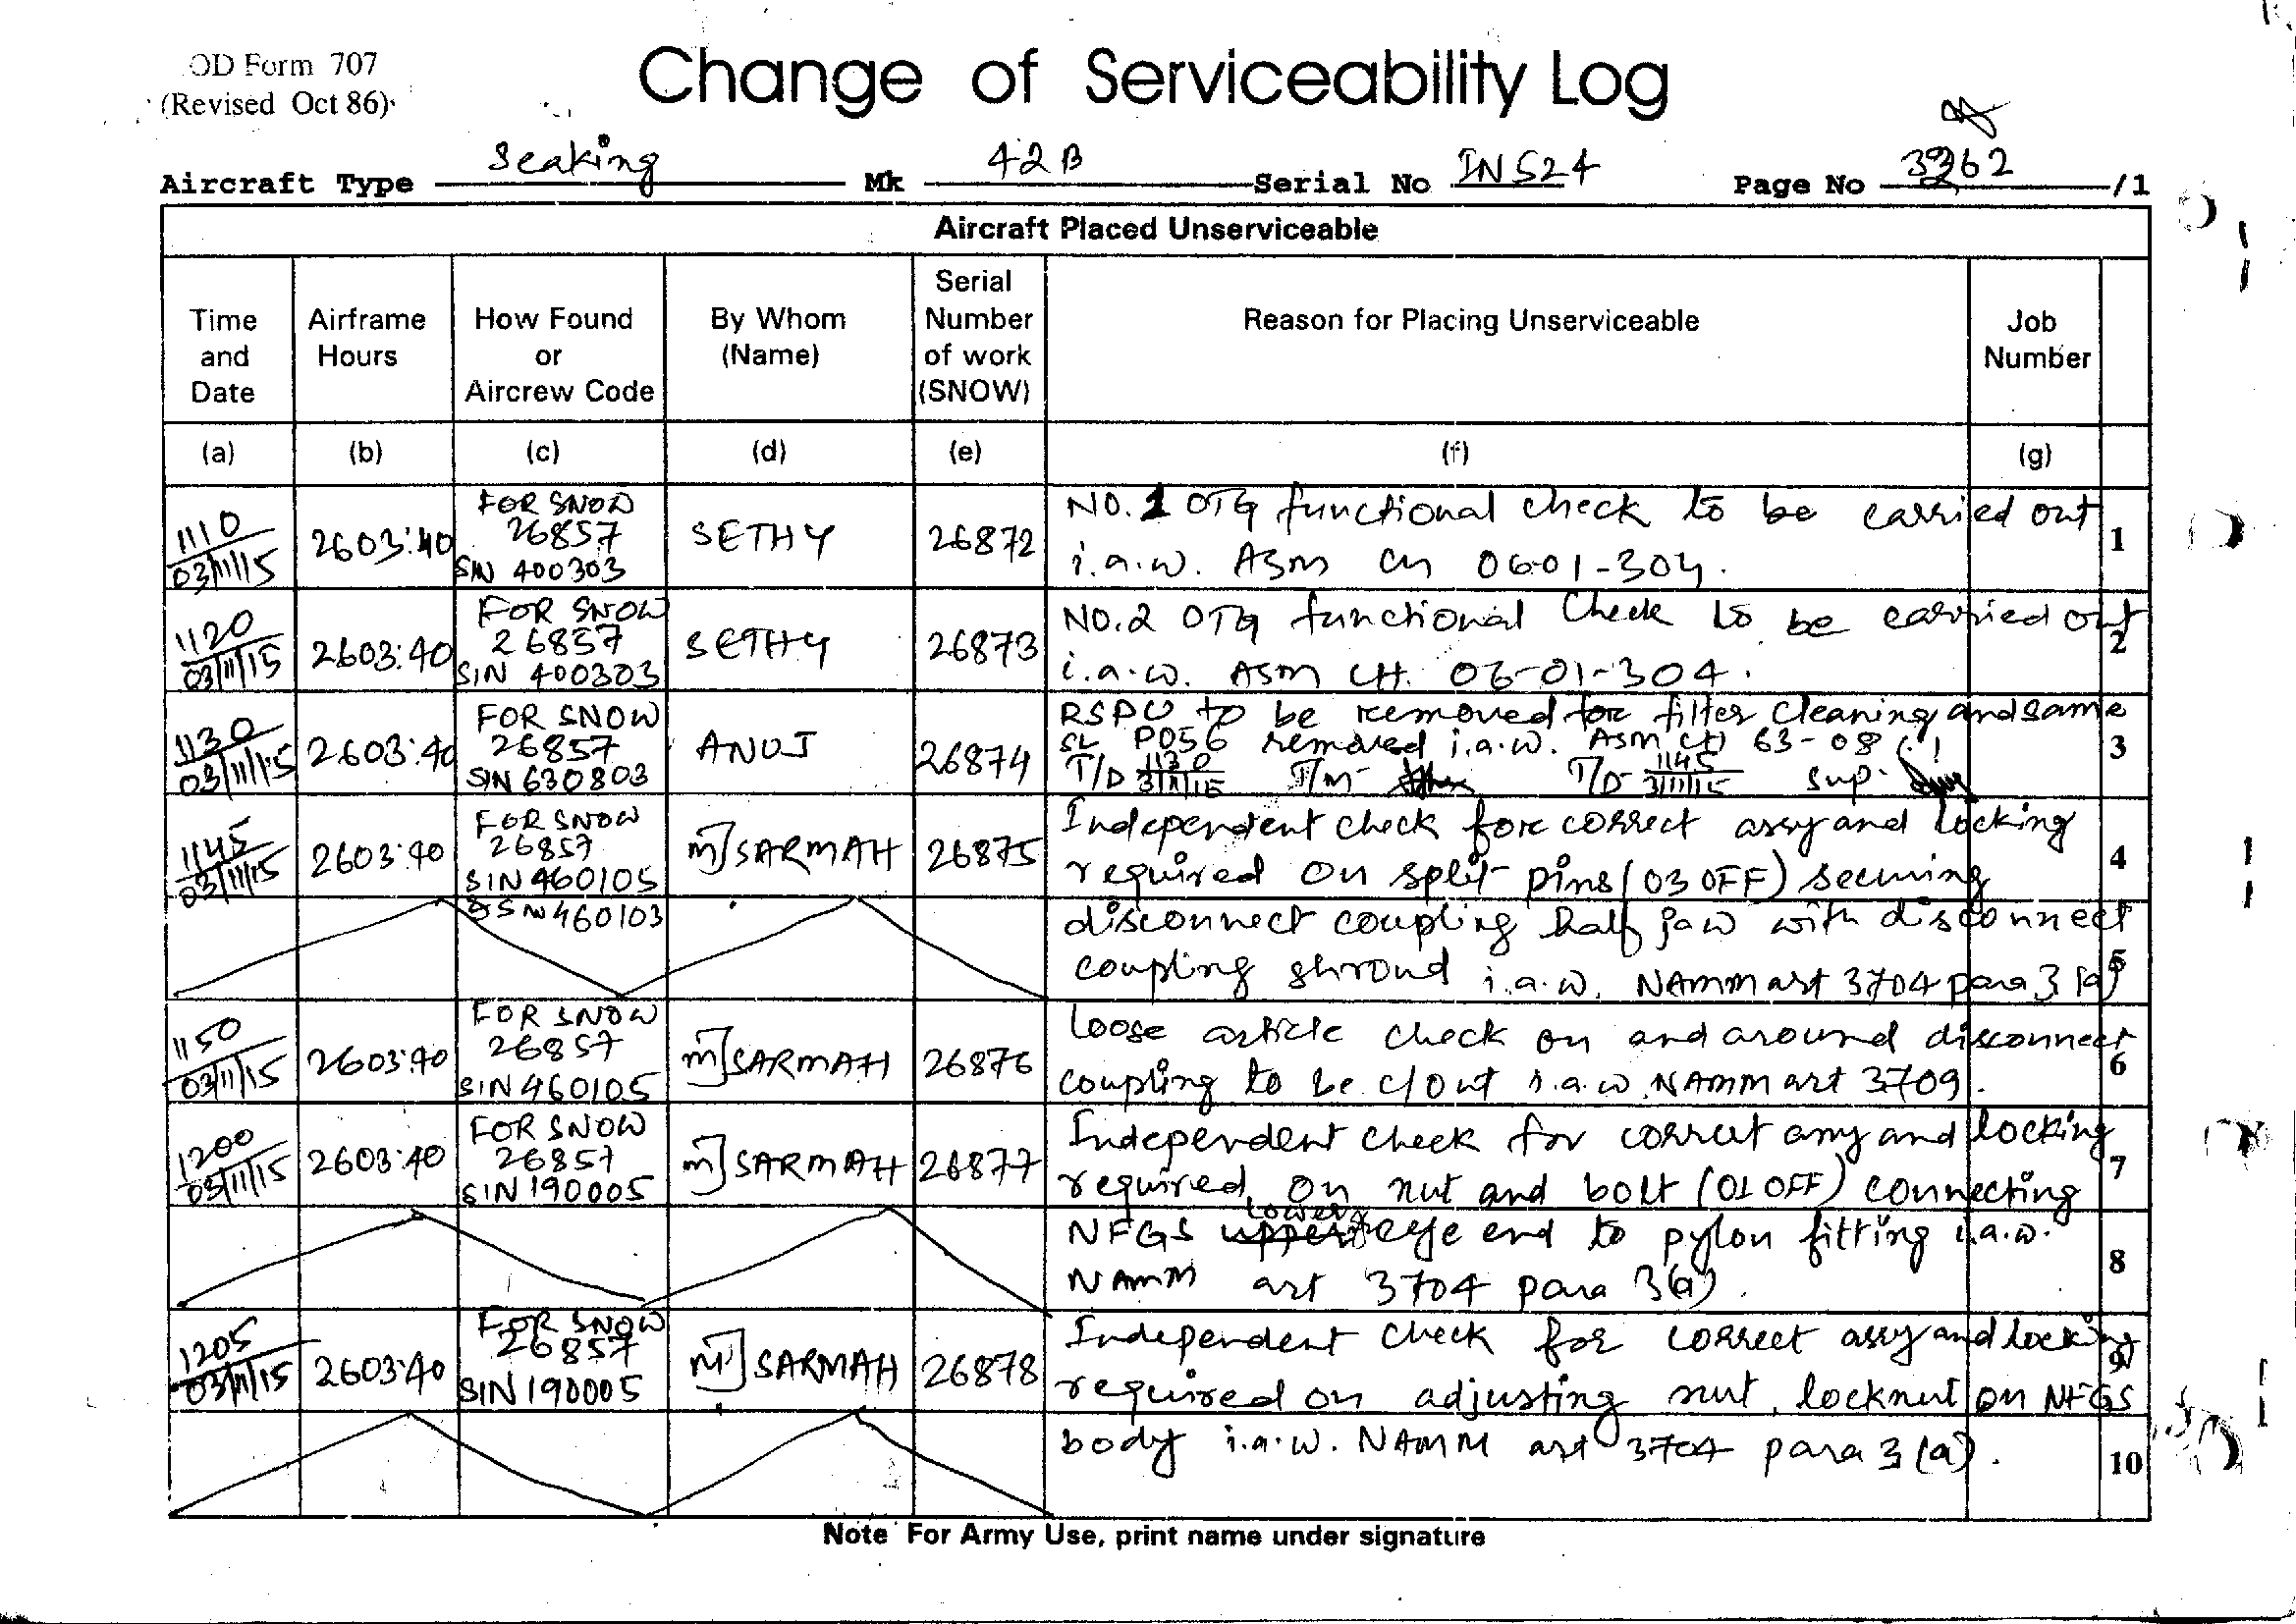 OD Form 707
(Revised Oct 86)
Change of Serviceability Log
Aircraft Type Seaking Mk 42B Serial No IN524 Page No 3362 /1
Aircraft Placed Unserviceable
Time and Date
Airframe Hours
How Found or Aircrew Code
By Whom (Name)
Serial Number of work (SNOW)
Reason for Placing Unserviceable
Job Number
(a) (b) (c) (d) (e) (f) (g)
1110 03/11/15 2603:40 FOR SNOW 26857 SIN 400303 SETHY 26872
No.1 OTG functional check to be carried out
i.a.w. ASM CH 0601-304. 1
1120 03/11/15 2603:40 FOR SNOW 26857 SIN 400303 SETHY 26873
NO.2 OTG functional Check to be carried out
i.a.w. ASM CH. 06-01-304. 2
1130 03/11/15 2603:40 FOR SNOW 26857 SIN 630803 ANUJ 26874
RSPU to be removed for filter Cleaning and same
SL P056 removed i.a.w. ASM CH 63-08 3
T/D 1130 3/11/15 T/M T/D 1145 3/11/15 Sup.
1145 03/11/15 2603:40 FOR SNOW 26857 SIN 460105 & SIN 460103 MJ SARMAH 26875
Independent check for correct assy and locking
required on split pins (03 OFF) securing 4
disconnect coupling half jaw with disconnect
coupling shroud i.a.w. NAMM art 3704 para 3 (a) 5
1150 03/11/15 2603:40 FOR SNOW 26857 SIN 460105 MJ SARMAH 26876
Loose article check on and around disconnect
coupling to be c/out i.a.w. NAMM art 3709. 6
1200 03/11/15 2603:40 FOR SNOW 26857 SIN 190005 MJ SARMAH 26877
Independent check for correct assy and locking
required on nut and bolt (01 OFF) connecting 7
NFGS lower eye end to pylon fitting i.a.w.
NAMM art 3704 para 3(a). 8
1205 03/11/15 2603:40 FOR SNOW 26857 SIN 190005 MJ SARMAH 26878
Independent check for correct assy and locking
required on adjusting nut, locknut on NFGS 9
body i.a.w. NAMM art 3704 para 3 (a). 10
Note For Army Use, print name under signature